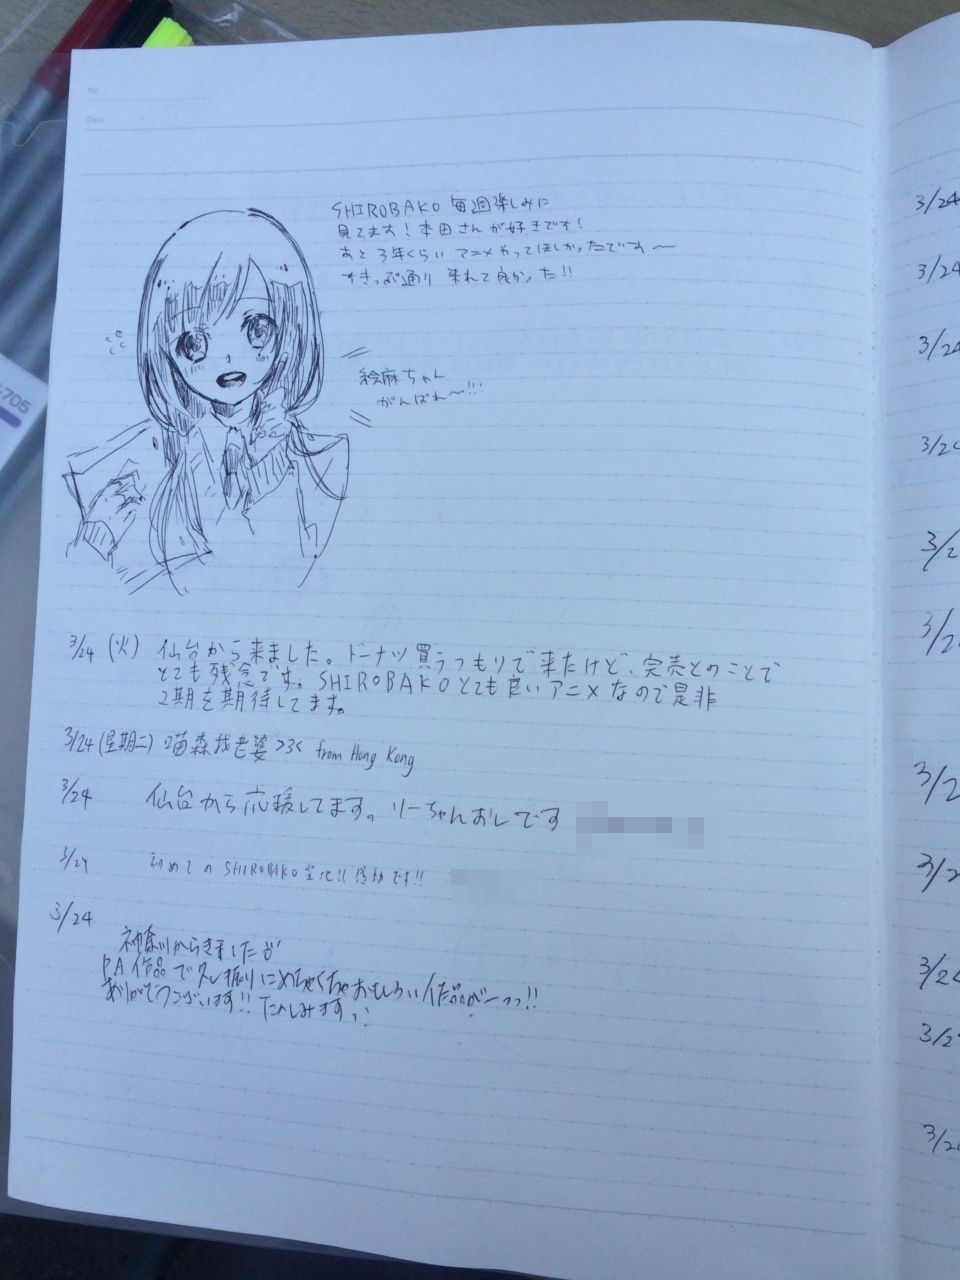 No.
Date
SHIROBAKO 毎週楽しみに
見てます!本田さんが好きです!
あと3年くらいアニメやってほしかったです〜
来れて良かった!!
絵麻ちゃん
がんばれ〜!!!
3/24 (火) 仙台から来ました。ドーナツ買うつもりで来たけど、完売とのことで
とても残念です。SHIROBAKOとても良いアニメなので是非
2期を期待してます。
3/24 (星期二) 喵森找老婆 >3< from Hong Kong
3/24 仙台から応援してます。りーちゃんおしです
3/24 初めての SHIROBAKO 聖地!! 感動です!!
3/24
神奈川からきました
PA作品で久し振りにめちゃくちゃおもしろい作品がーっっ!!
ありがとうございます!! たのしみますっ
-705
3/24
3/24
3/24
3/24
3/2
3/2
3/2
3/2
3/24
3/2
3/2